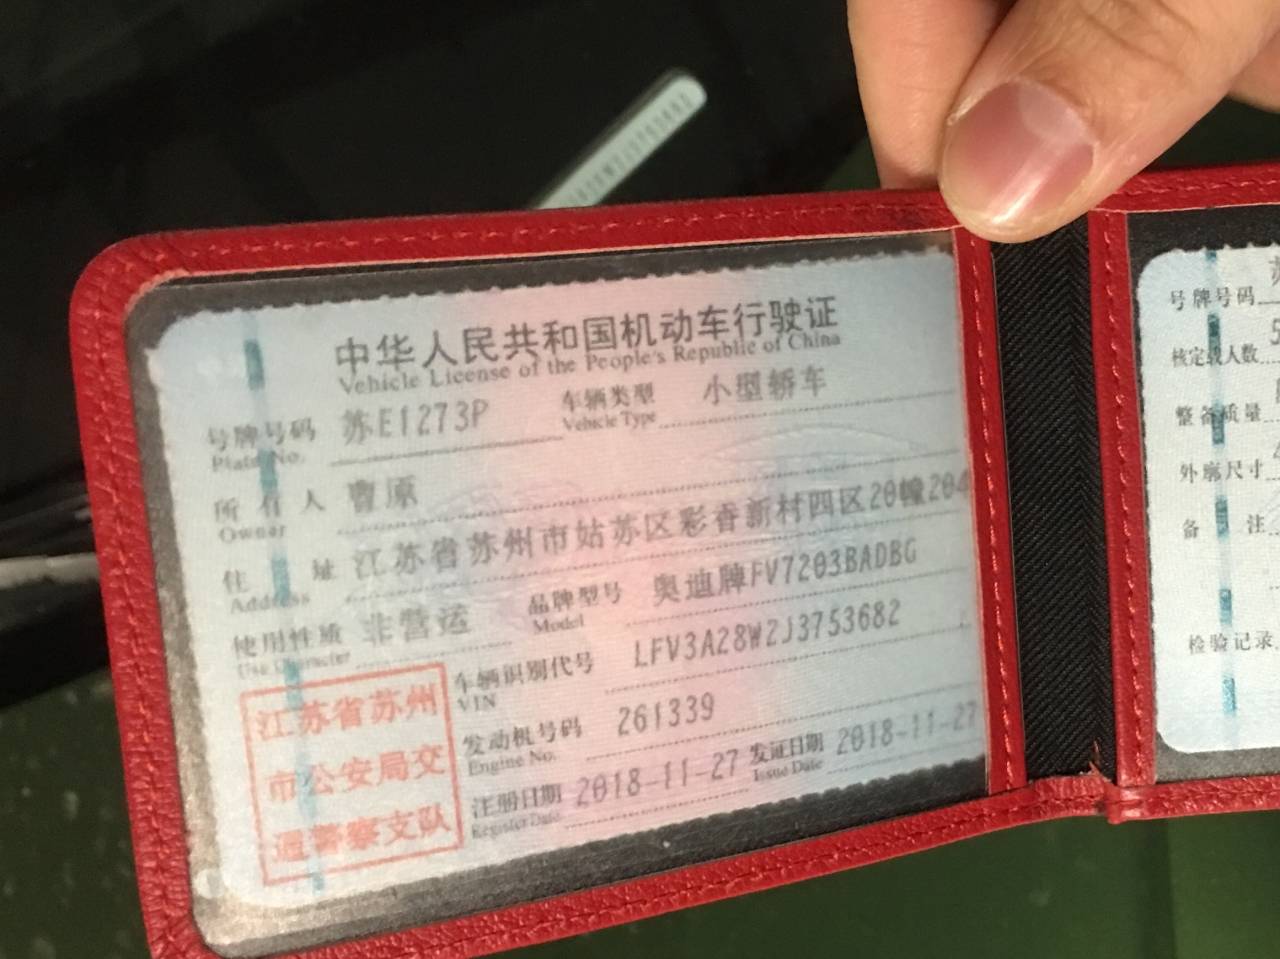 中华人民共和国机动车行驶证
Vehicle License of the People's Republic of China
号牌号码 苏E1273P 车辆类型 小型轿车
Plate No. Vehicle Type
所有人 曹原
Owner
住址 江苏省苏州市姑苏区彩香新村四区20幢204
Address
使用性质 非营运 品牌型号 奥迪牌FV7203BADBG
Use Character Model
车辆识别代号 LFV3A28W2J3753682
VIN
发动机号码 261339
Engine No.
注册日期 2018-11-27 发证日期 2018-11-27
Register Date Issue Date
江苏省苏州
市公安局交
通警察支队
号牌号码
核定载人数
整备质量
外廓尺寸
备注
检验记录